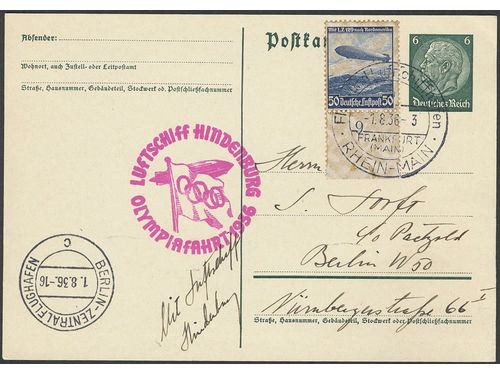 Absender:
Wohnort, auch Zustell- oder Leitpostamt
Straße, Hausnummer, Gebäudeteil, Stockwerk od. Postschließfachnummer
Mit LZ 129 nach Nordamerika
50 Deutsche Luftpost 50
6 6
Deutsches Reich
1.8.36-3
FRANKFURT
(MAIN)
RHEIN-MAIN
LUFTSCHIFF HINDENBURG
OLYMPIAFAHRT 1936
BERLIN-ZENTRALFLUGHAFEN
1.8.36.-16
C
Mit Luftschiff
Hindenburg
Herrn
c/o
Berlin W50
Nürnbergerstraße 66 I
Straße, Hausnummer, Gebäudeteil, Stockwerk oder Postschließfachnummer